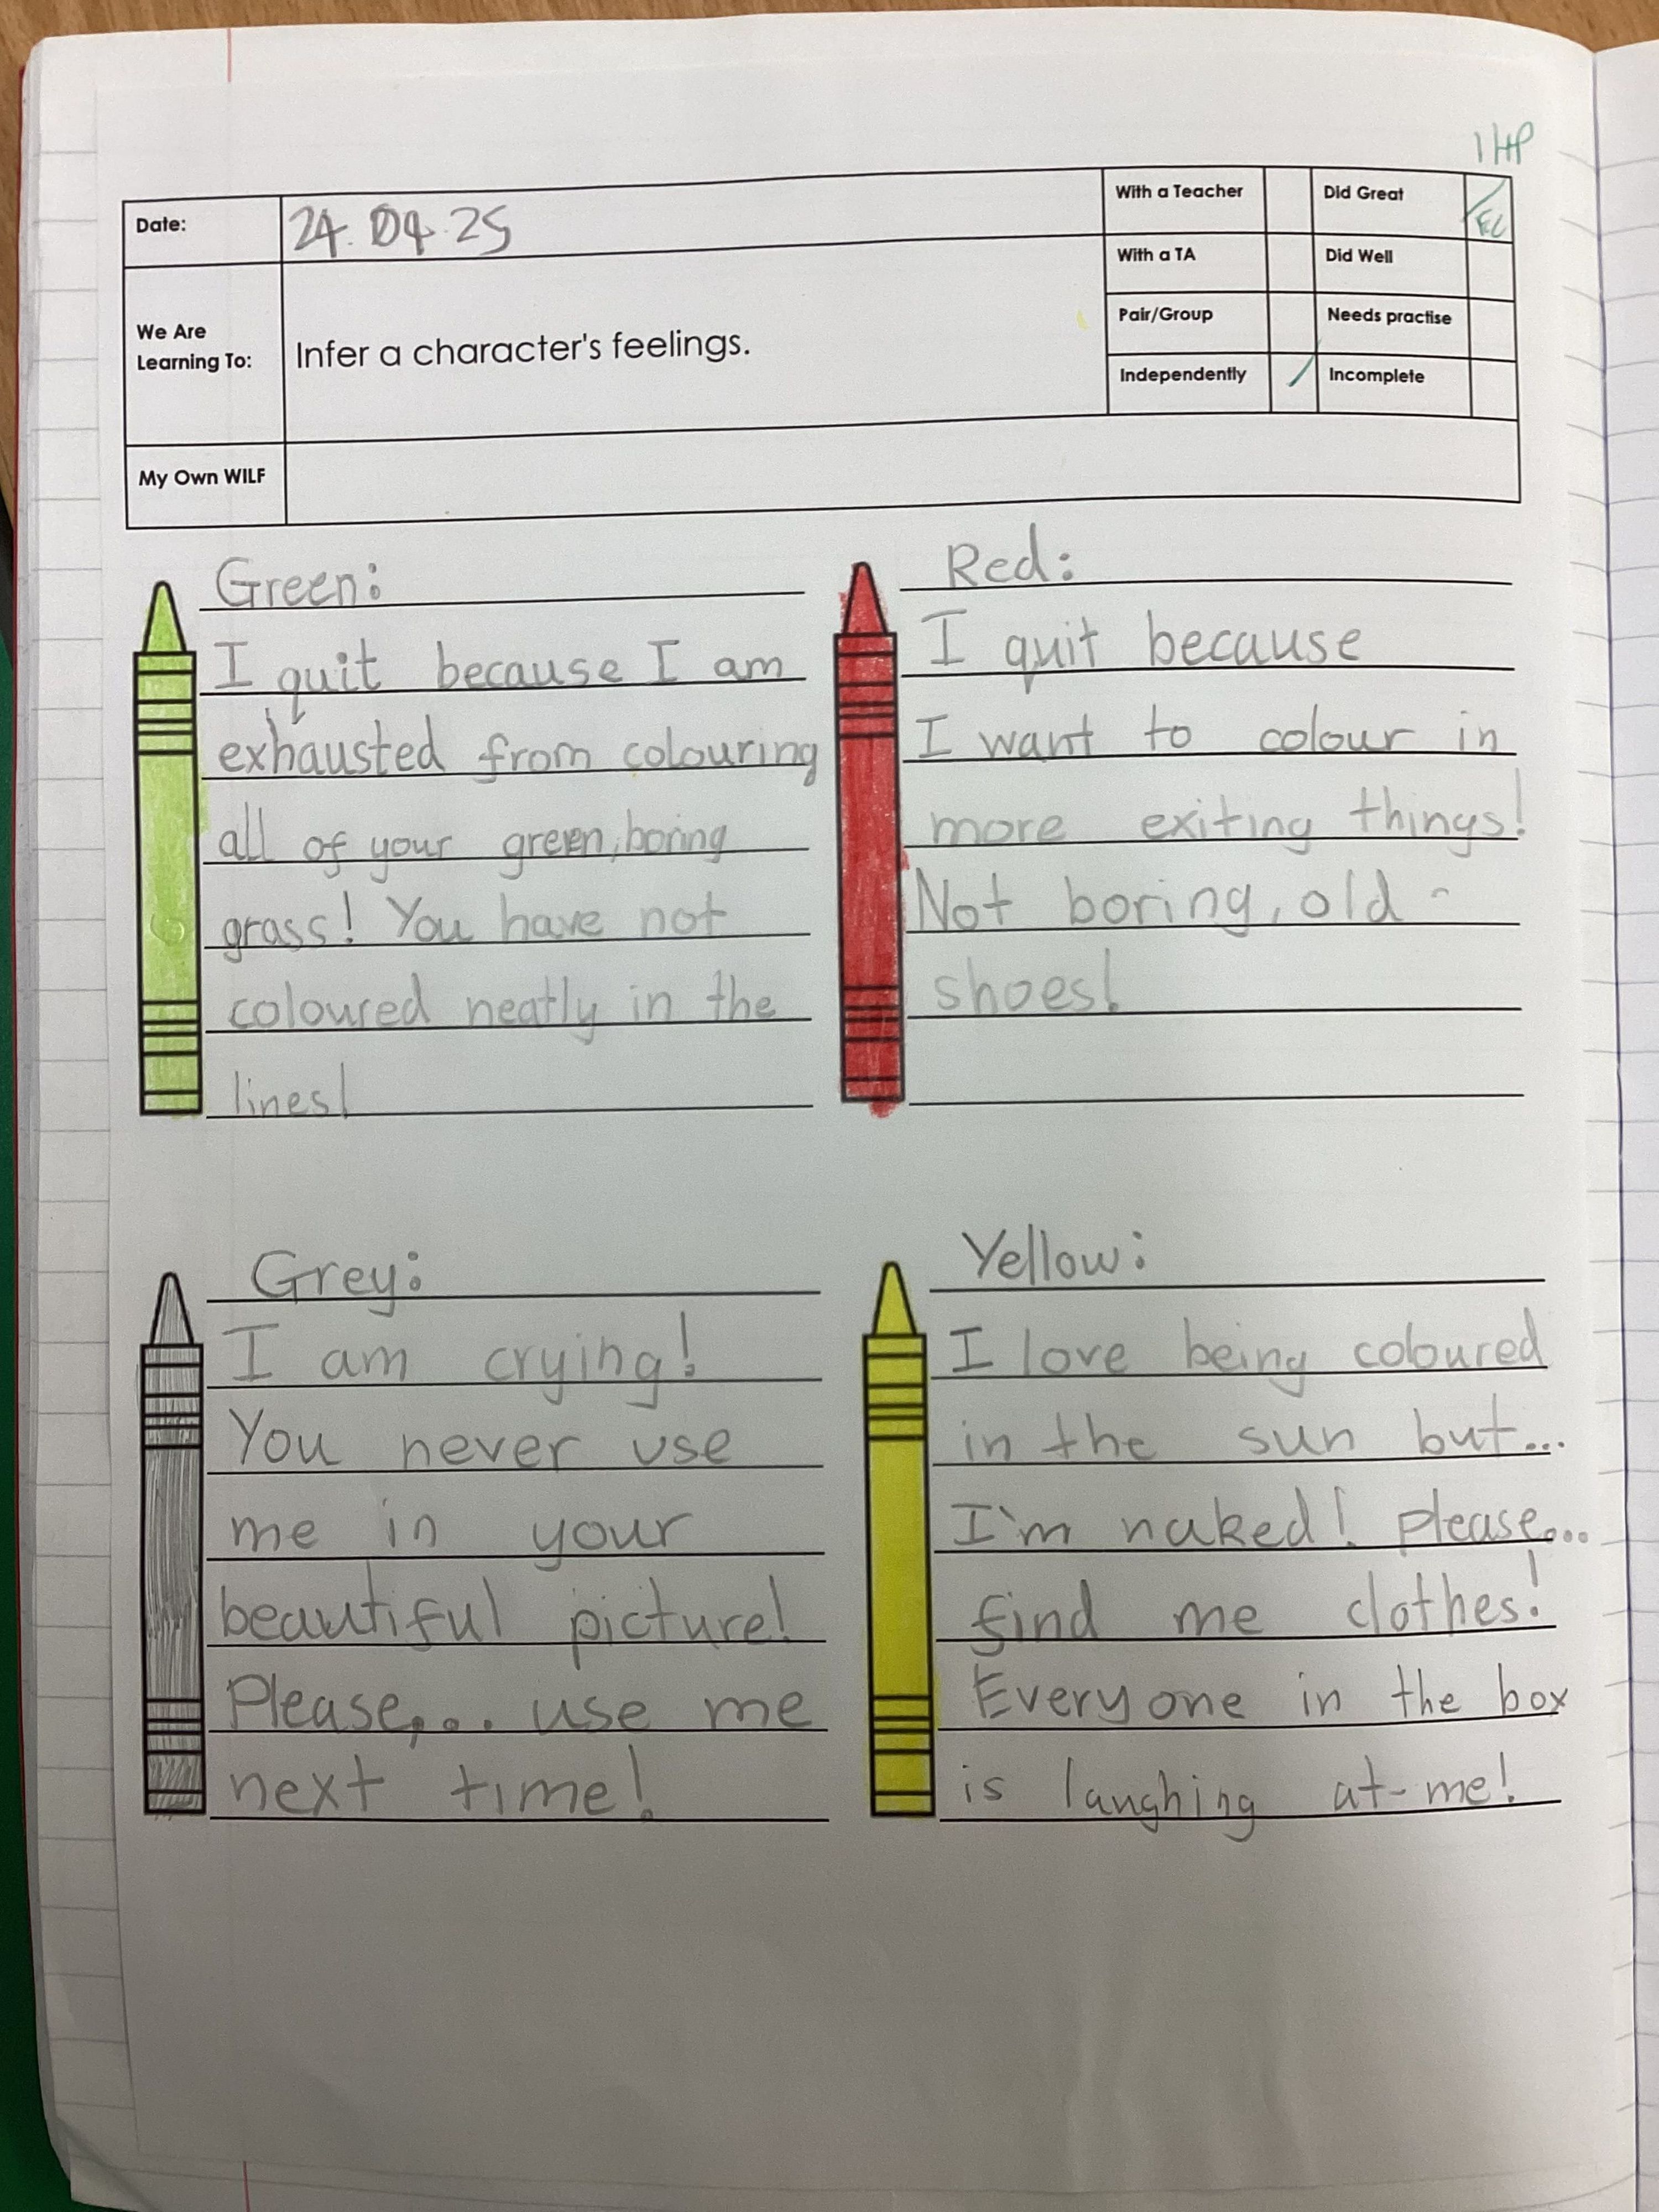 1 HP
Date:
24.04.25
With a Teacher
Did Great
EC
With a TA
Did Well
We Are
Learning To:
Infer a character's feelings.
Pair/Group
Needs practise
Independently
Incomplete
My Own WILF
Green:
I quit because I am
exhausted from colouring
all of your green, boring
grass! You have not
coloured neatly in the
lines!
Red:
I quit because
I want to colour in
more exiting things!
Not boring, old -
shoes!
Grey:
I am crying!
You never use
me in your
beautiful picture!
Please,... use me
next time!
Yellow:
I love being coloured
in the sun but...
I'm naked! please...
find me clothes!
Everyone in the box
is laughing at-me!